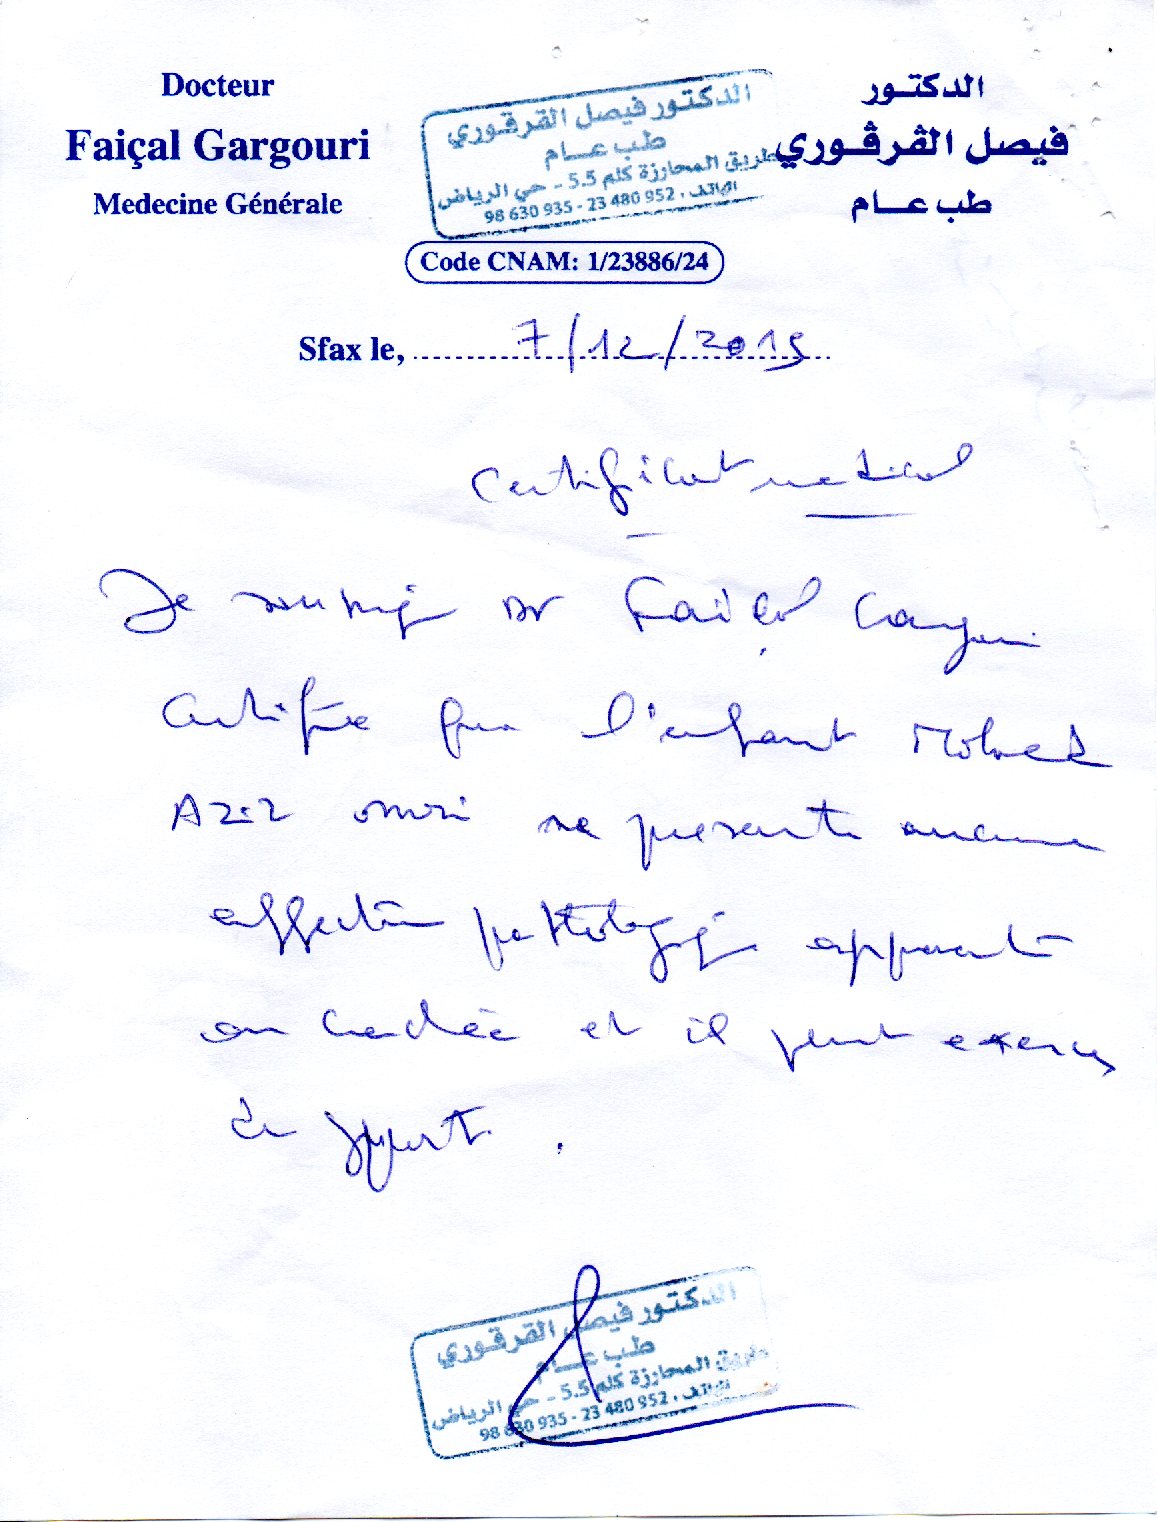 Docteur
Faiçal Gargouri
Medecine Générale
الدكتور فيصل القرقوري
طب عام
طريق المحارزة كلم 5.5 - حي الرياض
الهاتف : 98 630 935 - 23 480 952
الدكتور
فيصل الڤرڤوري
طب عام
Code CNAM: 1/23886/24
Sfax le, 7/12/2019
Certificat medical
Je soussigné Dr Faiçal Gargouri
Certifie que l'enfant Mohamed
Aziz omri ne presente aucune
affection pathologique apparente
ou cachée et il peut exercer
du sport.
الدكتور فيصل القرقوري
طب عام
طريق المحارزة كلم 5.5 - حي الرياض
الهاتف : 98 630 935 - 23 480 952